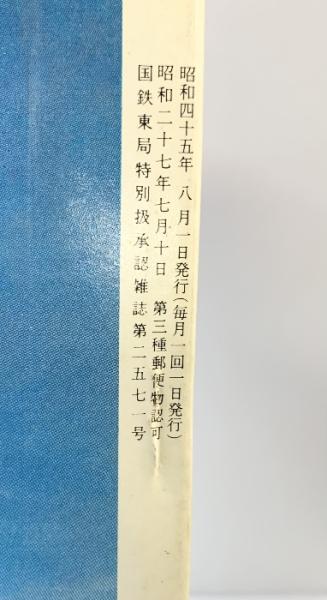 昭和四十五年八月一日発行(毎月一回一日発行)
昭和二十七年七月十日 第三種郵便物認可
国鉄東局特別扱承認雑誌第二五七一号